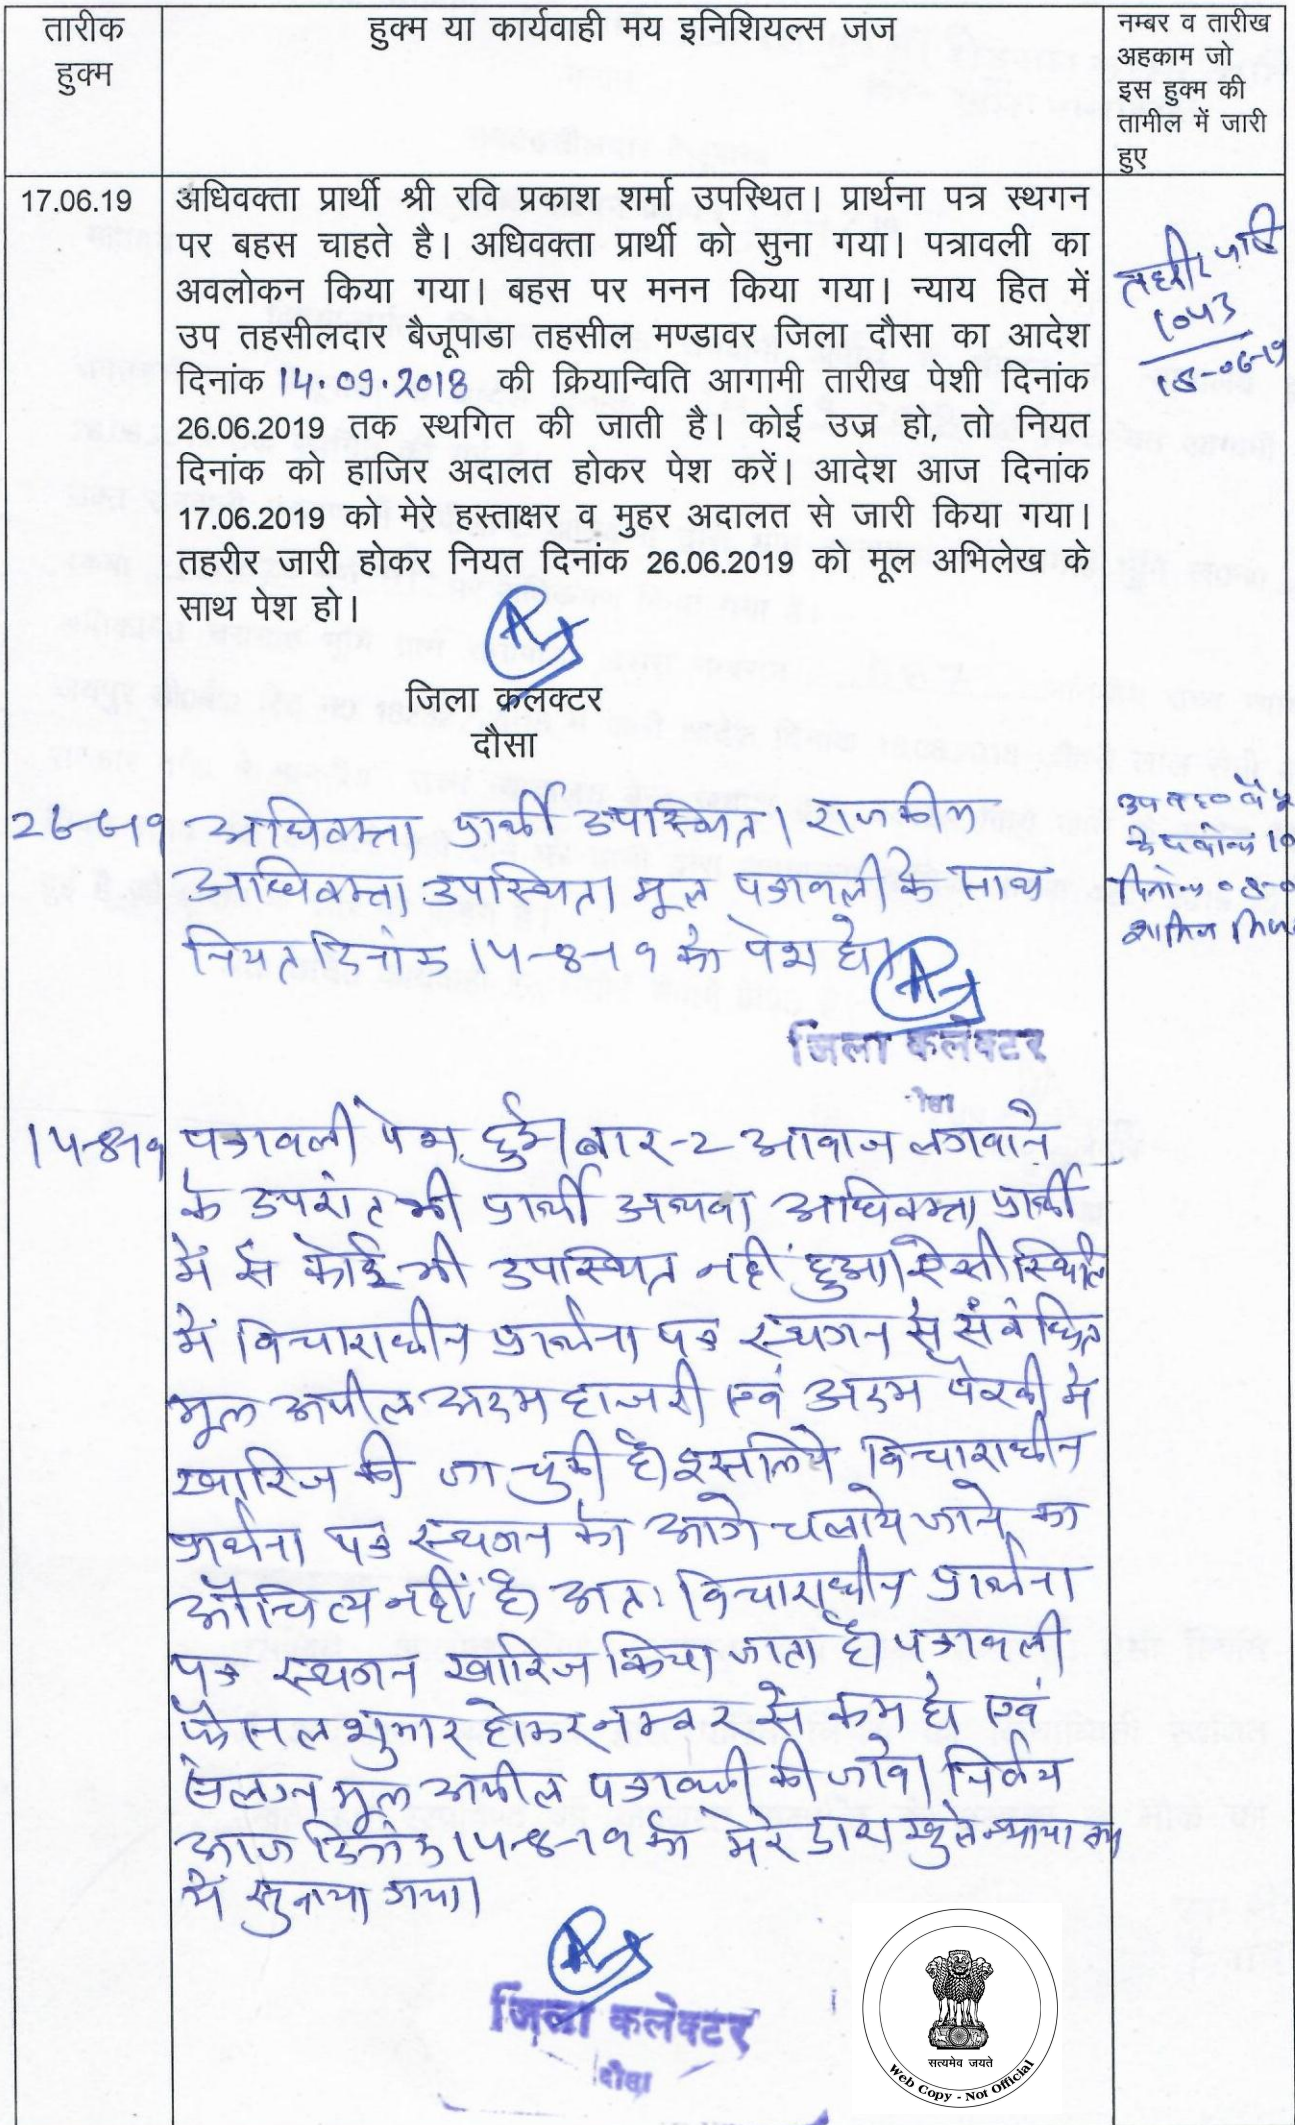 तारीक
हुक्म
हुक्म या कार्यवाही मय इनिशियल्स जज
नम्बर व तारीख
अहकाम जो
इस हुक्म की
तामील में जारी
हुए
17.06.19
अधिवक्ता प्रार्थी श्री रवि प्रकाश शर्मा उपस्थित। प्रार्थना पत्र स्थगन
पर बहस चाहते है। अधिवक्ता प्रार्थी को सुना गया। पत्रावली का
अवलोकन किया गया। बहस पर मनन किया गया। न्याय हित में
उप तहसीलदार बैजूपाडा तहसील मण्डावर जिला दौसा का आदेश
दिनांक 14.09.2018 की क्रियान्विति आगामी तारीख पेशी दिनांक
26.06.2019 तक स्थगित की जाती है। कोई उज्र हो, तो नियत
दिनांक को हाजिर अदालत होकर पेश करें। आदेश आज दिनांक
17.06.2019 को मेरे हस्ताक्षर व मुहर अदालत से जारी किया गया।
तहरीर जारी होकर नियत दिनांक 26.06.2019 को मूल अभिलेख के
साथ पेश हो।
जिला कलक्टर
दौसा
तहरीर जारी
1043
18-06-19
26-6-19
अधिवक्ता प्रार्थी उपस्थित। राजकीय
अधिवक्ता उपस्थित। मूल पत्रावली के साथ
नियत दिनांक 14-8-19 को पेश हो।
जिला कलेक्टर
दौसा
उप तह०
के पत्रांक 10
दिनांक
शामिल
14-8-19
पत्रावली पेश हुई। बार-2 आवाज लगवाने
के उपरांत भी प्रार्थी अथवा अधिवक्ता प्रार्थी
में से कोई भी उपस्थित नहीं हुआ। ऐसी स्थिति
में विचाराधीन प्रार्थना पत्र स्थगन से संबंधित
मूल अपील अदम हाजरी एवं अदम पैरवी में
खारिज की जा चुकी है। इसलिये विचाराधीन
प्रार्थना पत्र स्थगन को आगे चलाये जाने का
औचित्य नहीं है। अतः विचाराधीन प्रार्थना
पत्र स्थगन खारिज किया जाता है। पत्रावली
फैसल शुमार होकर नम्बर से कम हो एवं
संलग्न मूल अपील पत्रावली की जावे। निर्णय
आज दिनांक 14-8-19 को मेरे द्वारा खुले न्यायालय
में सुनाया गया।
जिला कलेक्टर
दौसा
सत्यमेव जयते
Web Copy - Not Official